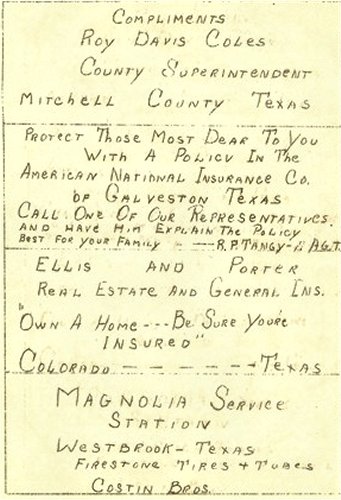 Compliments
Roy Davis Coles
County Superintendent
Mitchell County Texas
Protect Those Most Dear To You
With A Policy In The
American National Insurance Co.
of Galveston Texas
Call One Of Our Representatives.
and have Him Explain The Policy
Best for your Family - - R.P. Tangy - AGT.
Ellis and Porter
Real Estate and General Ins.
"Own A Home --- Be Sure You're
Insured"
Colorado - - - - - Texas
Magnolia Service
Station
Westbrook - Texas
Firestone Tires + Tubes
Costin Bros.